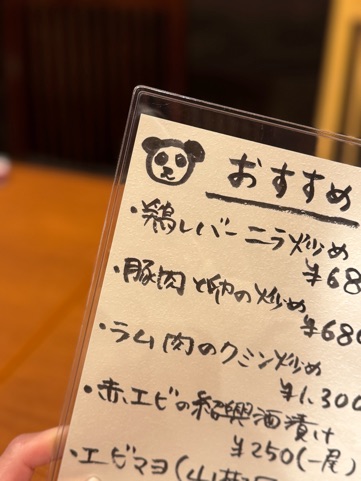 おすすめ
・鶏レバーニラ炒め
¥68
・豚肉と卵の炒め
¥680
・ラム肉のクミン炒め
¥1,300
・赤エビの紹興酒漬け
¥250(一尾)
・エビマヨ(山椒